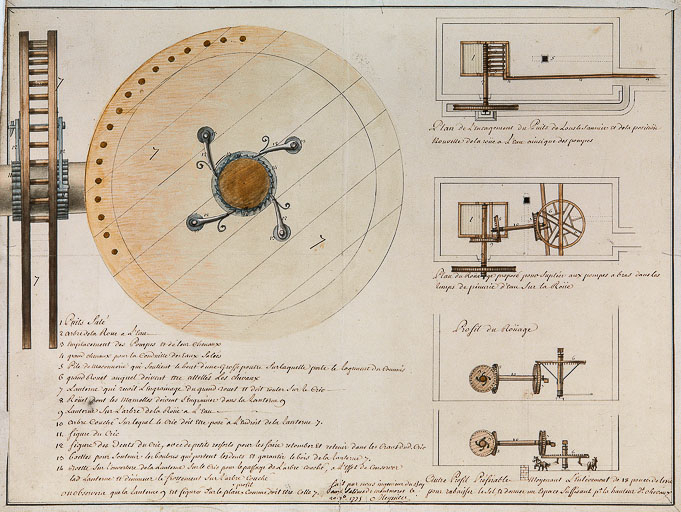 Plan de l'Encagement du Puits de Lons le Saunier et de la position
Nouvelle de la roue a L'eau ainsique des pompes
Plan du Rouage proposé pour Supléer aux pompes a bras dans les
temps de penurie d'eau Sur la Roüe
Profil du Roüage
1 Puits Salé
2 arbre de la Roue a L'eau
3 Emplacement des Pompes et de leur Cheneaux
4 grand cheneaux pour la Conduitte des Eaux Salées
5 Pile de maconnerie qui Soutient le bout d'une Grosse poutre Sur laquelle porte le logement du Commis
6 grand Rouet auquel doivent etre attelés Les chevaux
7 Lanterne qui reçoit L'engrainage du grand rouet et doit rouler Sur le Cric
8 Rouet dont les Mamelles doivent S'engrainer dans la Lanterne 9
9 Lanterne Sur L'arbre de la Roüe a L'eau
10 arbre Couché Sur lequel le Cric doit etre posé a L'endroit de la Lanterne 7.
11 figure du Cric
12 figure des Dents du Cric, avec de petits ressorts pour les faire retomber et retenir dans les Crans dud. Cric
13 boettes pour Soutenir les boulons qui portent les dents et garantir le bois de la Lanterne 7.
14 de la Lanterne Sur le Cric pour le passage de L'arbre couché, a L'effet de Conserver
lad. Lanterne et diminuer le frottement Sur l'arbre Couché
on observera que la lanterne 9 est figurée Sur le plan Comme doit etre Celle 7.
profil
fait par nous ingenieur du Roy
1771
Autre Profil Préférable Moyennant L'enlevement de 18 pouces de terre
pour rabaisser le Sol et donner un Espace Suffisant pr. la hauteur Des chevaux